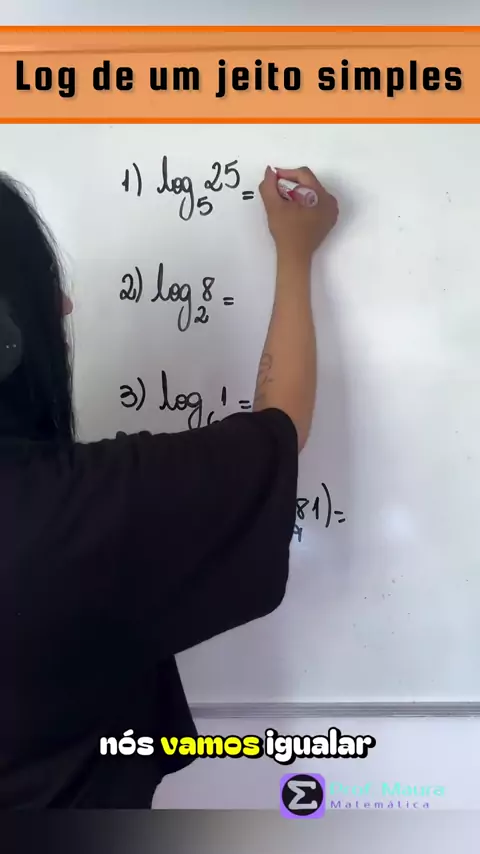 Log de um jeito simples
1) log₅ 25 =
2) log₂ 8 =
3) log 1 =
81) =
nós vamos igualar
Prof. Maura
Matemática